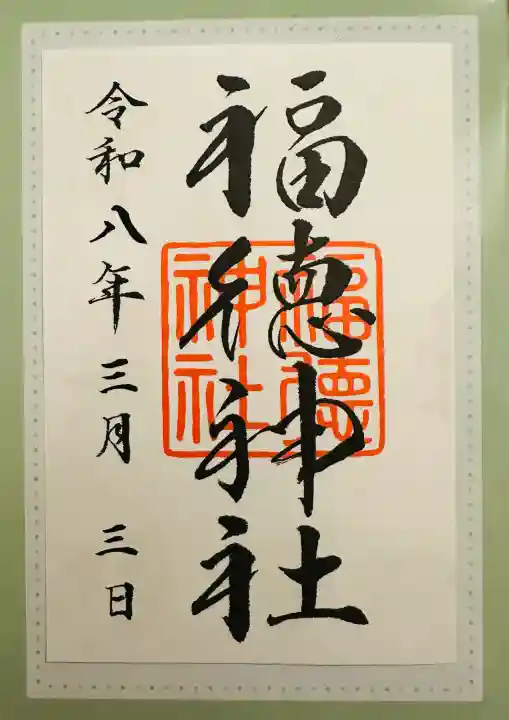 福徳神社
福徳神社
令和八年三月三日